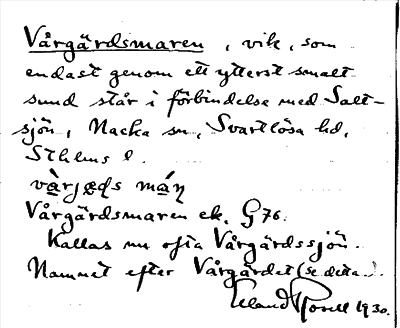 Vårgärdsmaren, vik, som
endast genom ett ytterst smalt
sund står i förbindelse med Salt-
sjön, Nacka sn, Svartlösa hd,
Sthlms l.
Vårgärdsmaren ek. G76.
Kallas nu ofta Vårgärdssjön.
Namnet efter Vårgärdet (se detta).
Erland Rosell 1930.